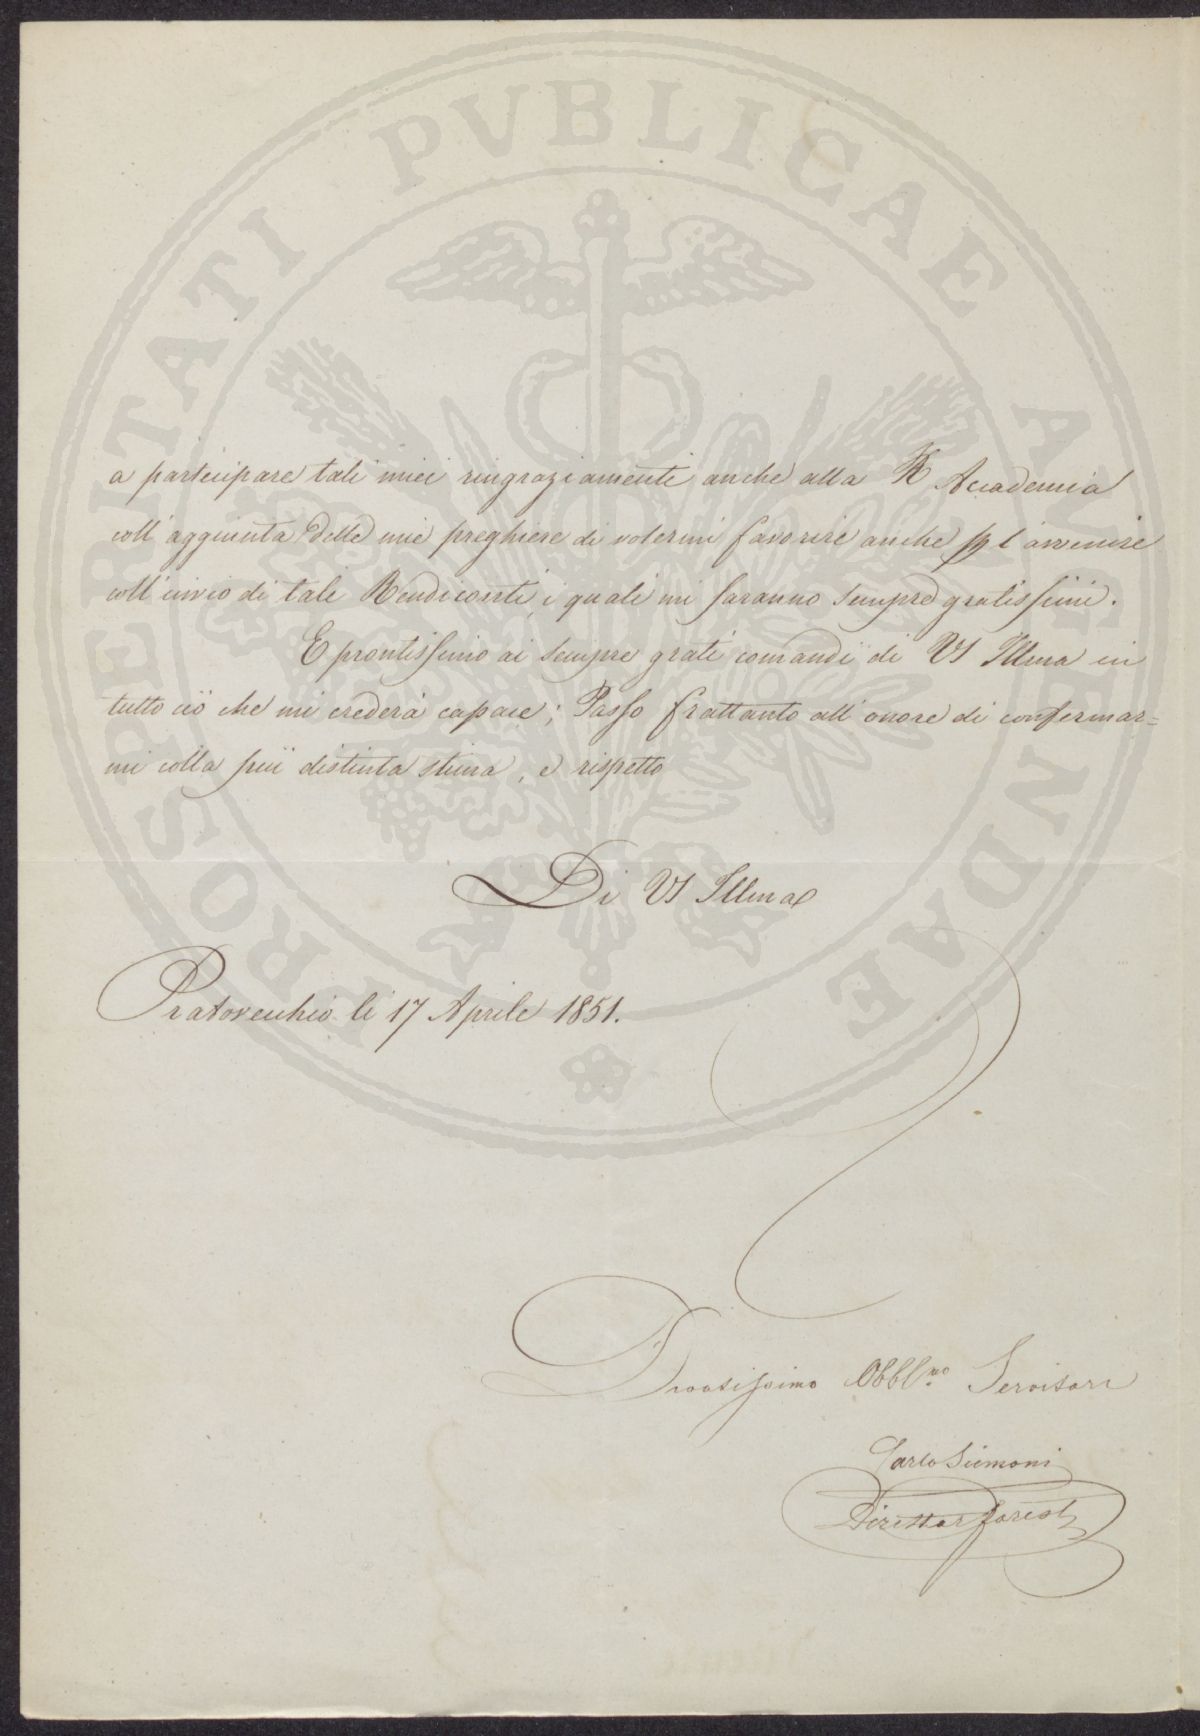 PROSPERITATI PVBLICAE AVGENDAE
a participare tali miei ringraziamenti anche alla R Accademia
coll' aggiunta delle mie preghiere di volermi favorire anche p l'avvenire
coll' invio di tali Rendiconti, i quali mi saranno sempre gratissimi.
E prontissimo ai sempre grati comandi di VS Illma in
tutto ciò che mi crederà capace; Passo frattanto all' onore di confermar=
mi colla più distinta stima, e rispetto
Di VS Illma
Pratovecchio li 17 Aprile 1851.
Devotissimo Obblmo Servitore
Carlo Siemoni
Direttor forest